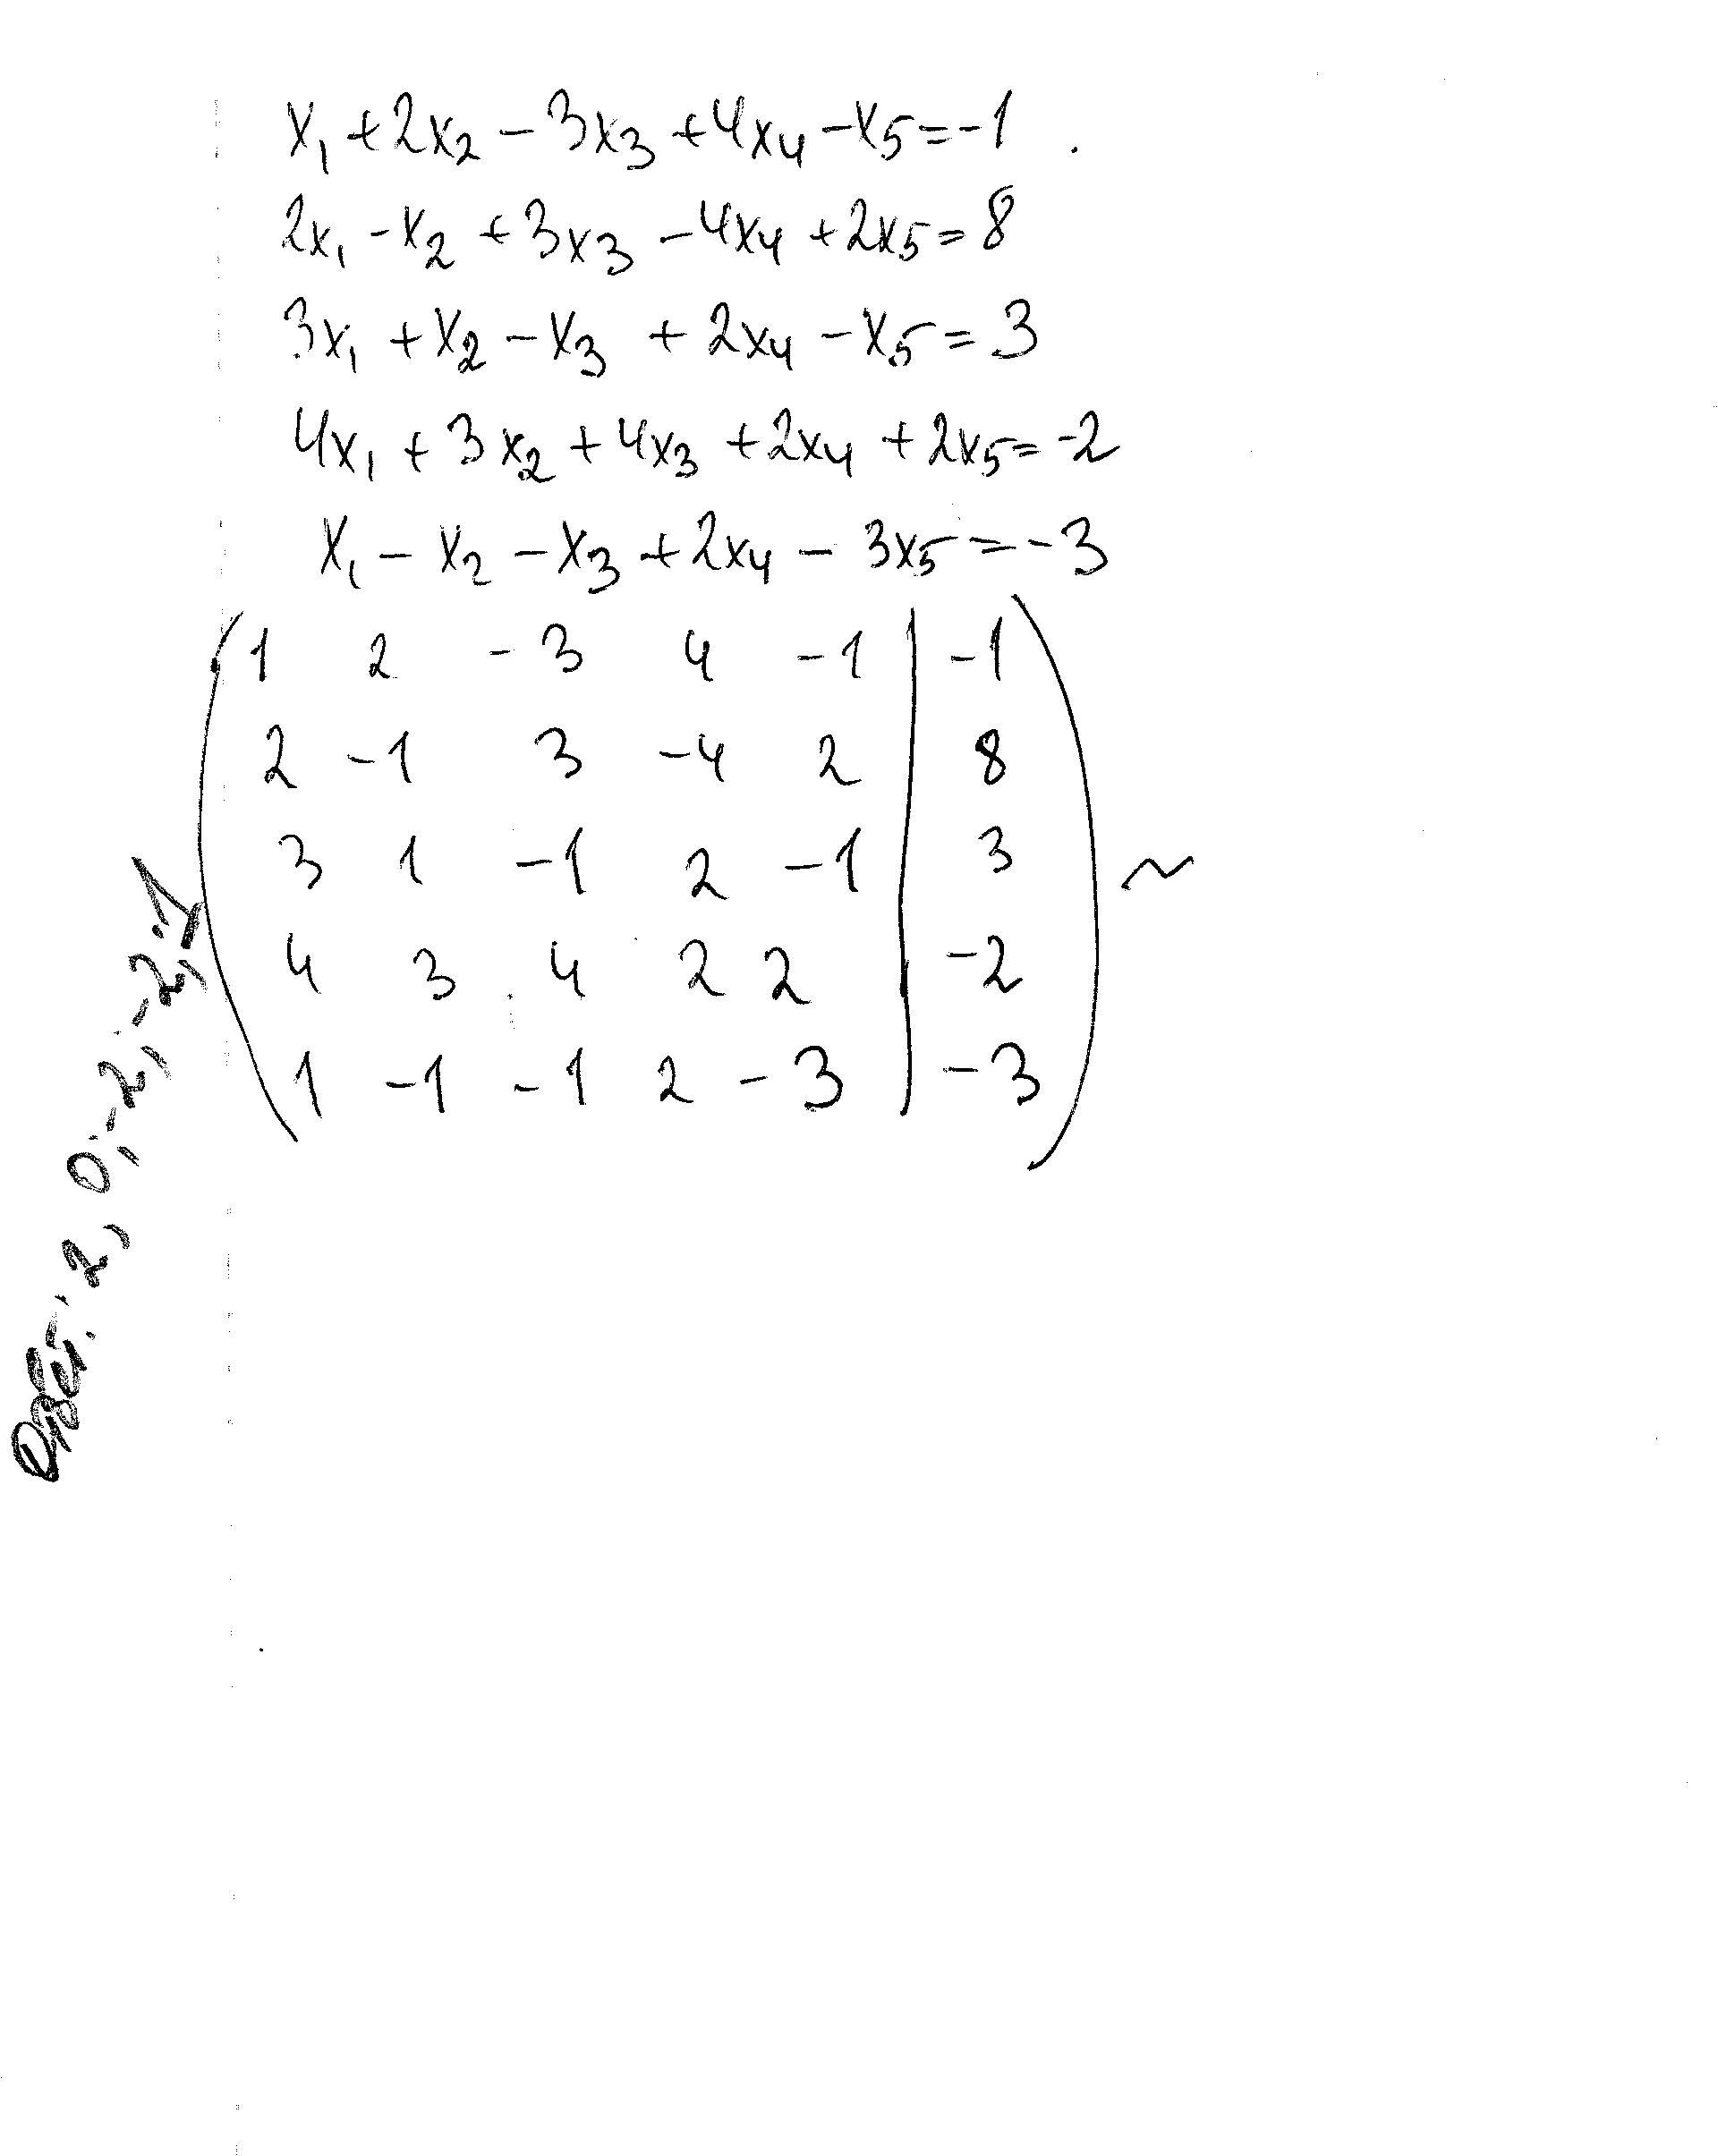 x₁ + 2x₂ - 3x₃ + 4x₄ - x₅ = -1
2x₁ - x₂ + 3x₃ - 4x₄ + 2x₅ = 8
3x₁ + x₂ - x₃ + 2x₄ - x₅ = 3
4x₁ + 3x₂ + 4x₃ + 2x₄ + 2x₅ = -2
x₁ - x₂ - x₃ + 2x₄ - 3x₅ = -3
( 1 2 -3 4 -1 | -1 )
2 -1 3 -4 2 | 8
3 1 -1 2 -1 | 3 ~
4 3 4 2 2 | -2
1 -1 -1 2 -3 | -3
Ответ: 2, 0; -2; -2; 1